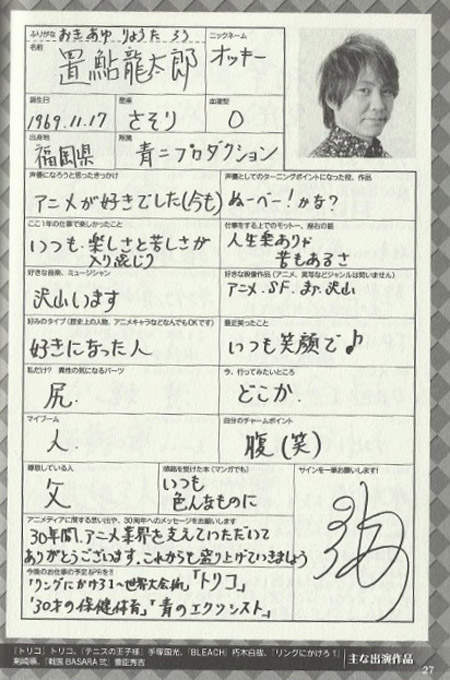 ふりがな おきあゆ りょうた ろう
名前 置鮎龍太郎
ニックネーム
オッキー
誕生日 1969.11.17
星座 さそり
血液型 O
出身地 福岡県
所属 青二プロダクション
声優になろうと思ったきっかけ
アニメが好きでした(今も)
声優としてのターニングポイントになった役、作品
ぬーべー!かな?
ここ1年の仕事で楽しかったこと
いつも楽しさと苦しさが
入り混じり
仕事をする上でのモットー、座右の銘
人生楽ありゃ
苦もあるさ
好きな音楽、ミュージシャン
沢山います
好きな映像作品(アニメ、実写などジャンルは問いません)
アニメ.SF.また沢山
好みのタイプ(歴史上の人物、アニメキャラなどなんでもOKです)
好きになった人
最近笑ったこと
いつも笑顔で♪
私だけ? 異性の気になるパーツ
尻.
今、行ってみたいところ
どこか.
マイブーム
人.
自分のチャームポイント
腹(笑)
尊敬している人
父
感銘を受けた本(マンガでも)
いつも
色んなものに
サインを一筆お願いします!
アニメディアに関する思い出や、30周年へのメッセージをお願いします
30年間、アニメ業界を支えていただいて
ありがとうございます.これからも盛り上げていきましょう
今後のお仕事の予定&PRを!!
「リングにかけろ1~世界大会編」「トリコ」
「30才の保健体育」「青のエクソシスト」
『トリコ』トリコ、『テニスの王子様』手塚国光、『BLEACH』朽木白哉、『リングにかけろ1』
剣崎順、『戦国BASARA弐』豊臣秀吉
主な出演作品
27